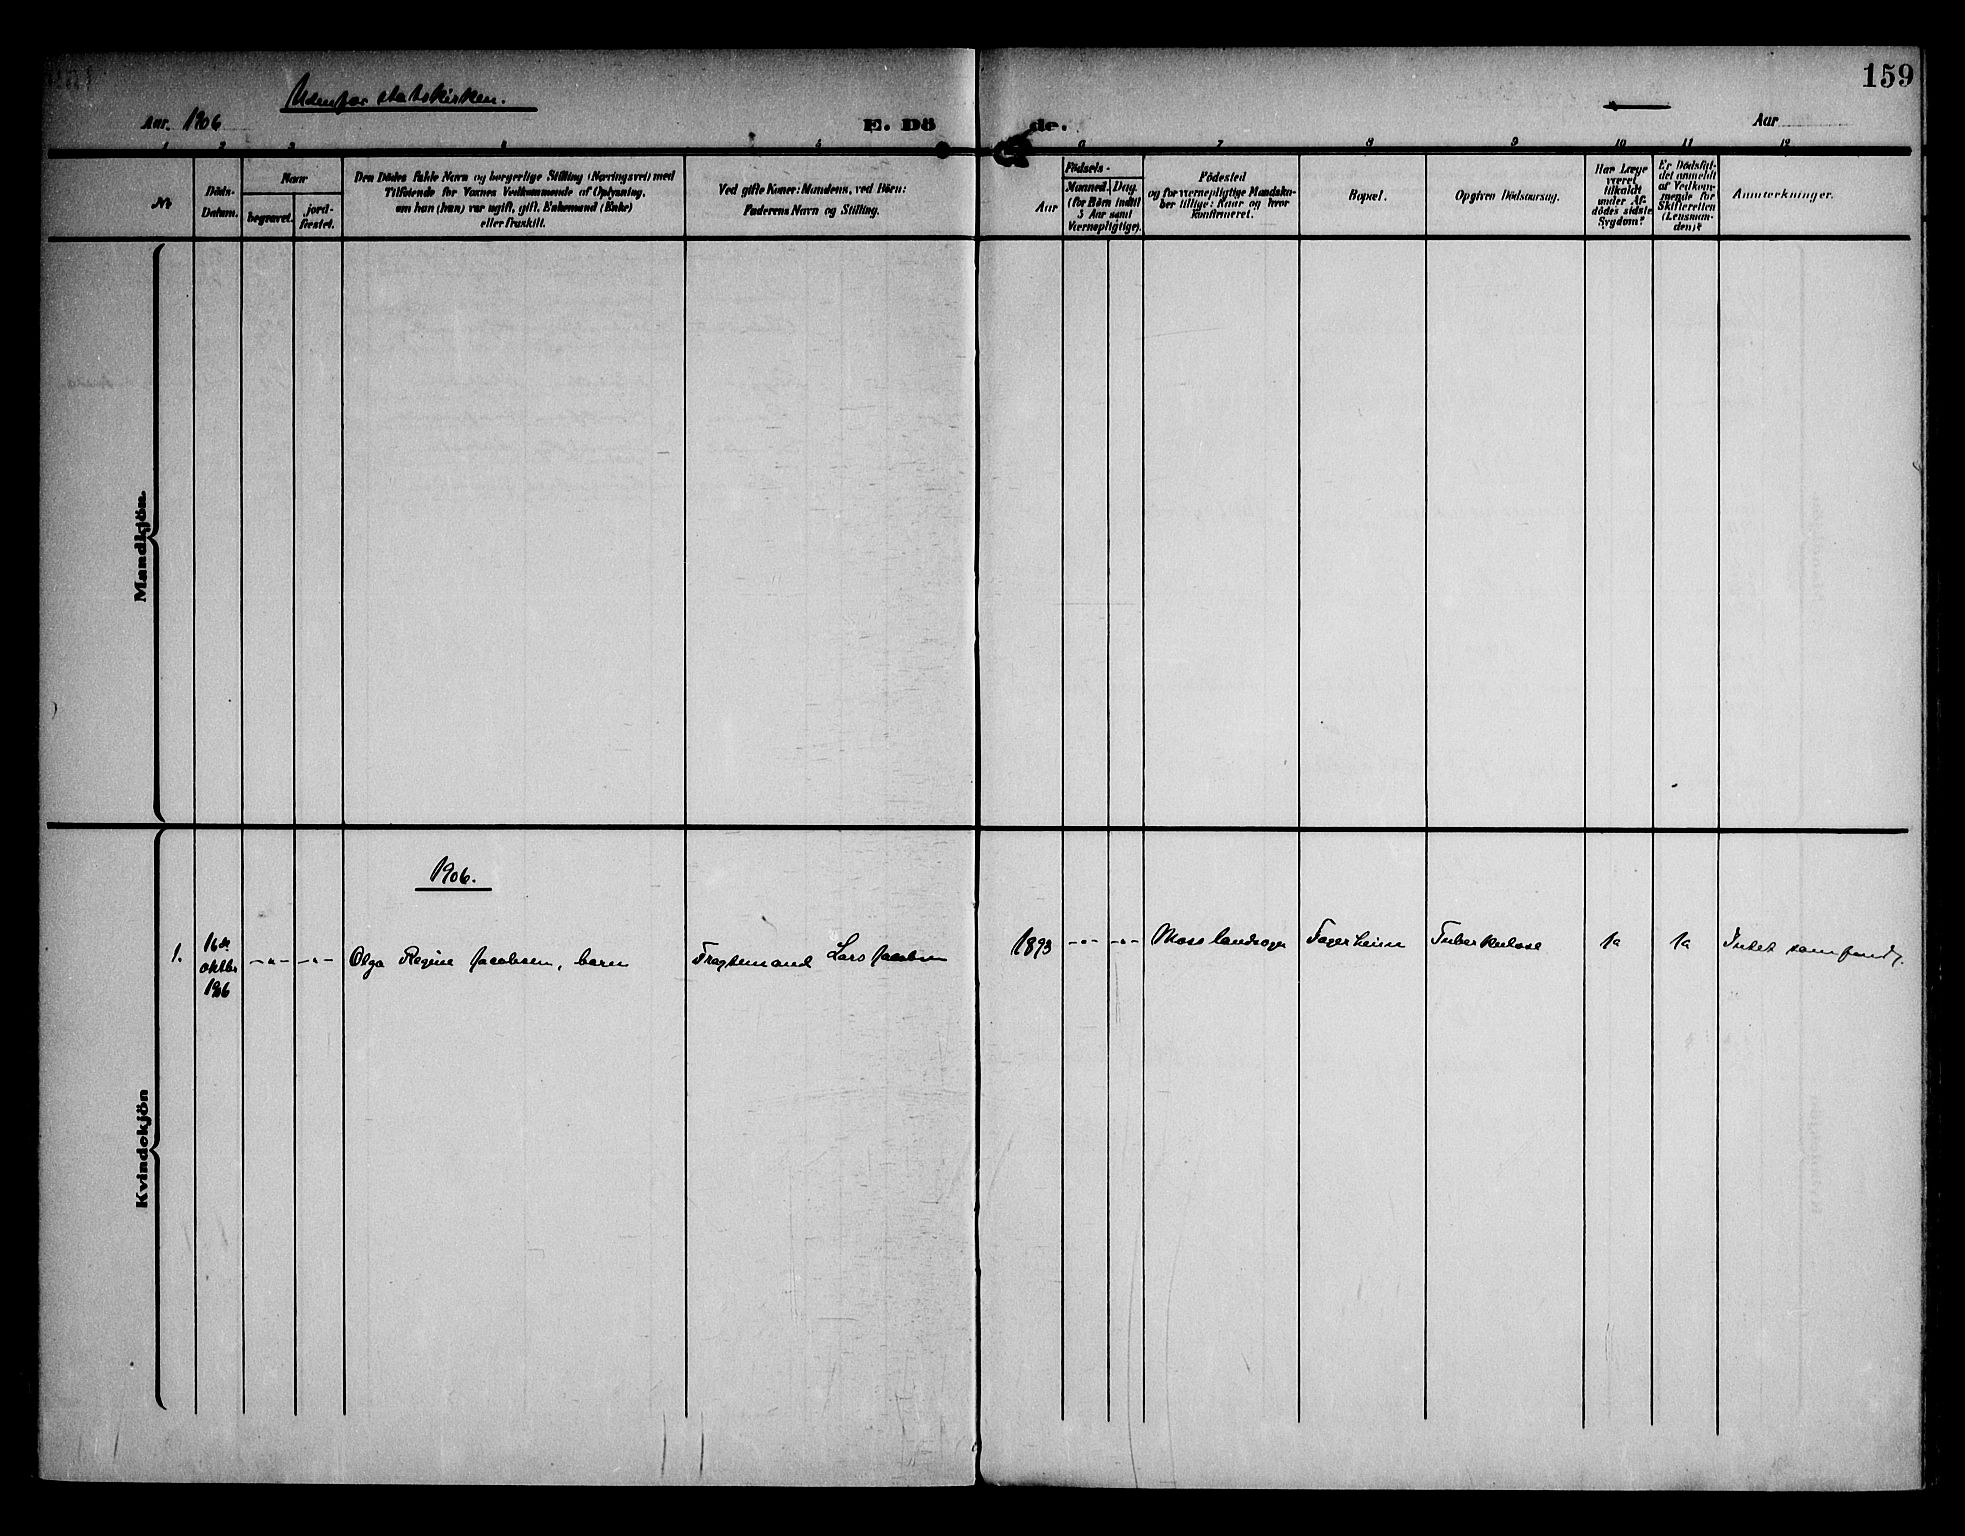 159
Udenfor statskirken.
Aar. 1906
E. Döde.
Aar
1 2 3 4 5 6 7 8 9 10 11 12
No
Döds-
Datum.
Naar
begravet.
jord-
fæstet.
Den Dödes fulde Navn og borgerlige Stilling (Næringsvei) med
Tilföiende for Voxnes Vedkommende af Oplysning,
om han (hun) var ugift, gift, Enkemand (Enke)
eller fraskilt.
Ved gifte Koner: Mandens, ved Börn:
Faderens Navn og Stilling.
Födsels-
Aar
Maaned. Dag.
(for Börn indtil
5 Aar samt
Værnepligtige).
Födested
og for værnepligtige Mandska-
ber tillige: Naar og hvor
konfirmeret.
Bopæl.
Opgiven Dödsaarsag.
Har Læge
været
tilkaldt
under Af-
dödes sidste
Sygdom?
Er Dödsfal-
det anmeldt
af Vedkom-
mende for
Skifteretten
(Lensman-
den)?
Anmærkninger.
Mandkjön.
Kvindekjön
1906.
1.
16de
oktbr
1906
-"- -"-
Olga Regine Jacobsen, barn
Fragtemand Lars Jacobsen
1893 -"- -"-
Moss landsogn
Fagerheim
Tuberkulose
Ja
Ja
Intet samfund.